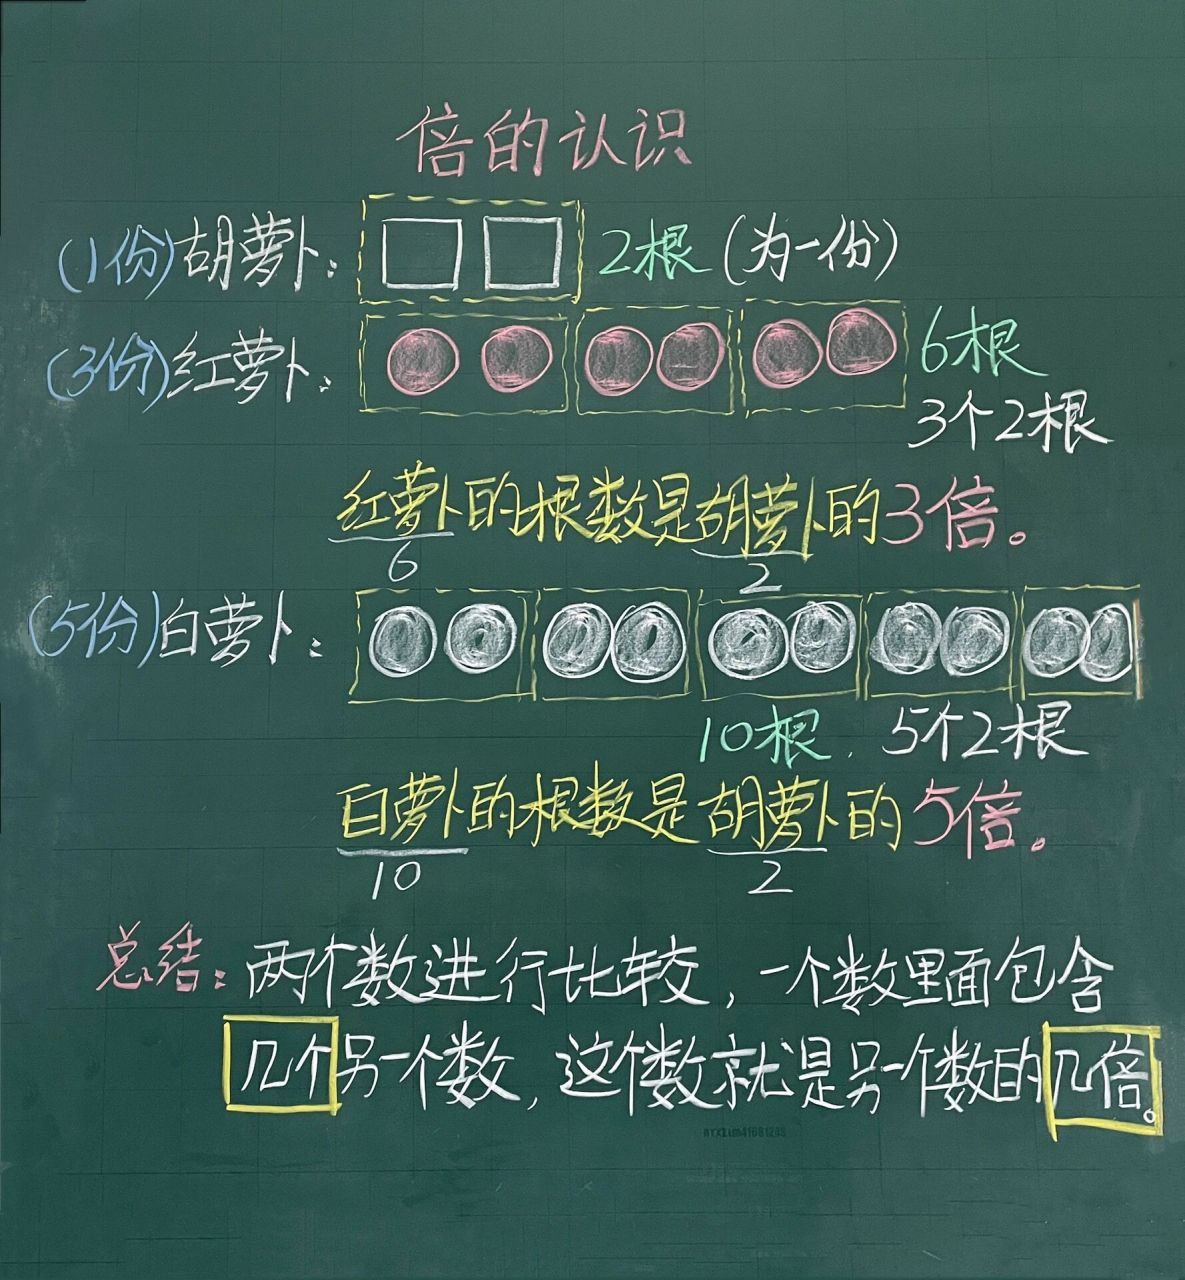 倍的认识
(1份)胡萝卜: 2根 (为一份)
(3份)红萝卜: 6根
3个2根
红萝卜的根数是胡萝卜的3倍。
6 2
(5份)白萝卜:
10根. 5个2根
白萝卜的根数是胡萝卜的5倍。
10 2
总结: 两个数进行比较, 一个数里面包含
几个另一个数, 这个数就是另一个数的几倍。